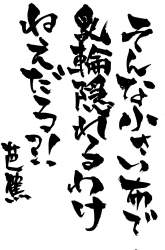 そんな小さい布で
乳輪隠れるわけ
ねえだろ!!
芭蕉